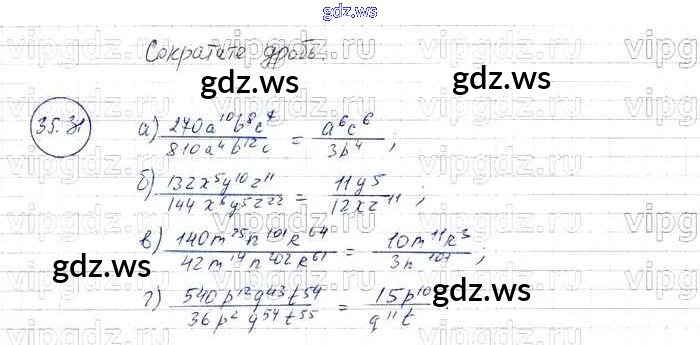 gdz.ws
Сократите дробь.
gdz.ws gdz.ws
35.31 а) 270a¹⁰b⁸c⁷ / 810a⁴b¹²c = a⁶c⁶ / 3b⁴ ;
б) 132x⁵y¹⁰z¹¹ / 144x⁶y⁵z²² = 11y⁵ / 12xz¹¹ ;
в) 140m²⁵n¹⁰¹k⁶⁴ / 42m¹⁴n²⁰²k⁶¹ = 10m¹¹k³ / 3n¹⁰¹ ;
gdz.ws
г) 540p¹²q⁴³t⁵⁴ / 36p²q⁵⁴t⁵⁵ = 15p¹⁰ / q¹¹t
gdz.ws
vipgdz.ru vipgdz.ru vipgdz.ru vipg